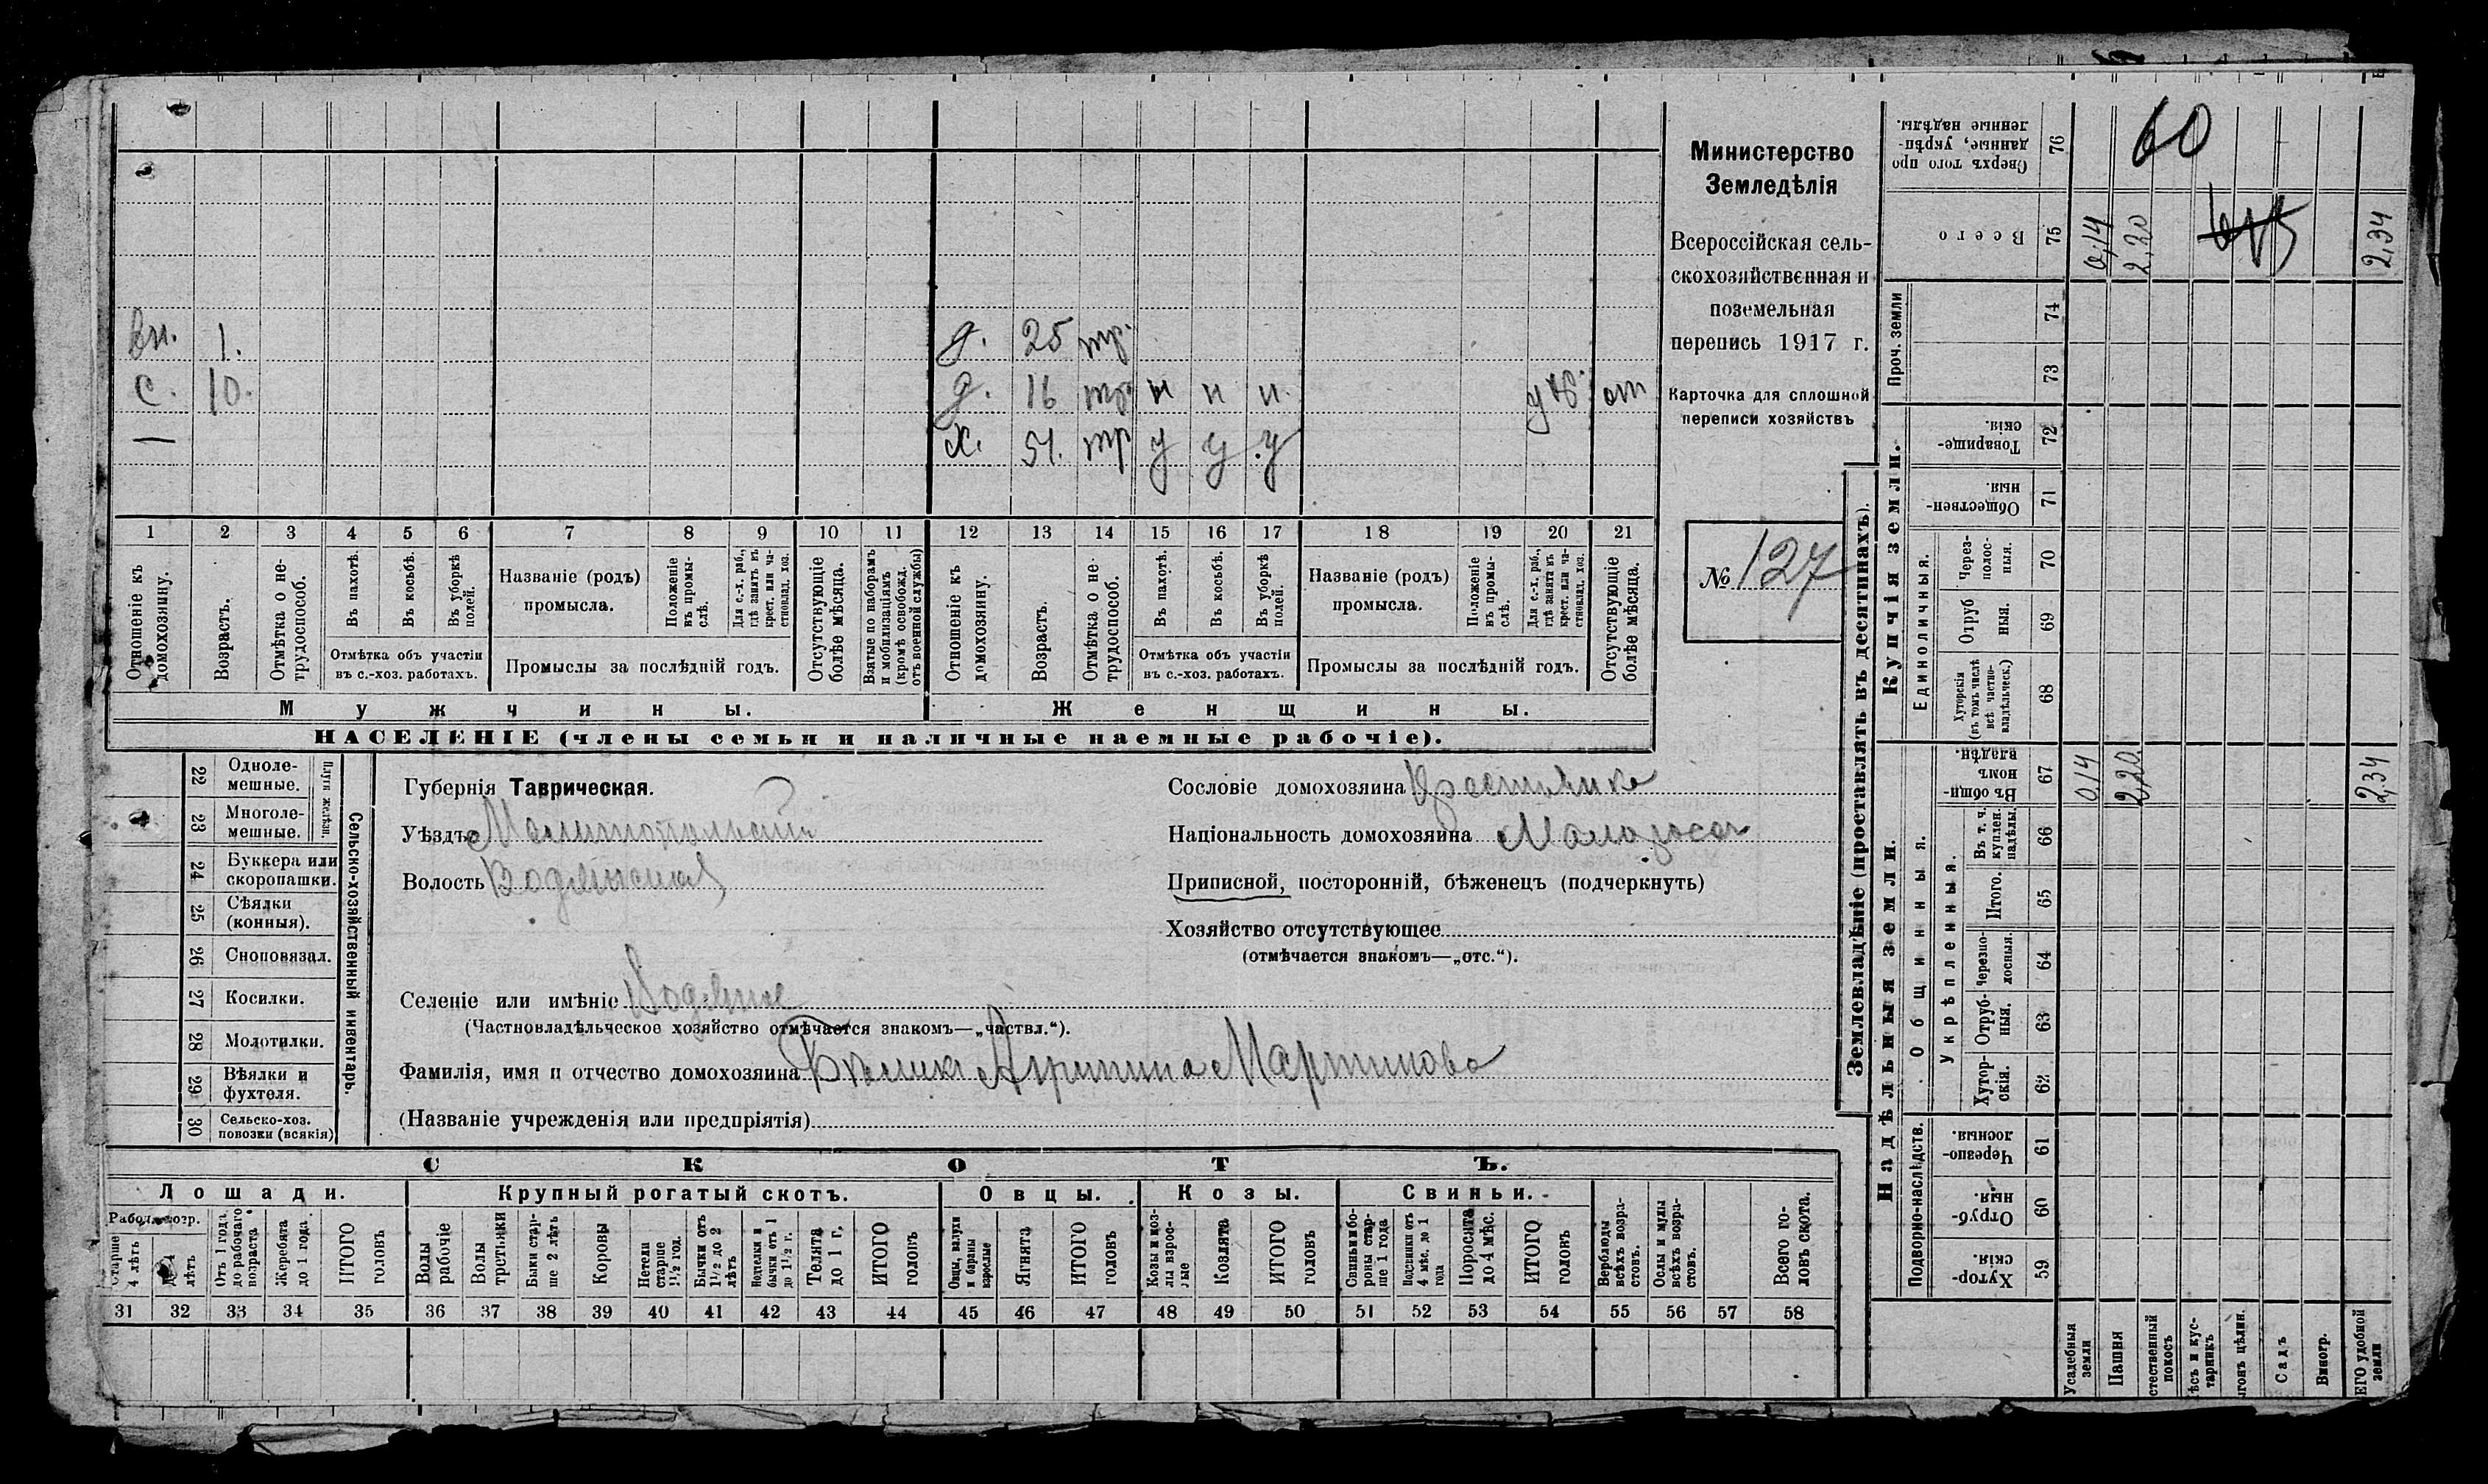 вн. 1. д. 25 тр.
с. 10. д. 16 тр. н н н. от
— х. 51. тр у у у
1 2 3 4 5 6 7 8 9 10 11 12 13 14 15 16 17 18 19 20 21
Отношеніе къ домохозяину.
Возрастъ.
Отмѣтка о не-
трудоспособ.
Въ пахотѣ.
Въ косьбѣ.
Въ уборкѣ
полей.
Отмѣтка объ участіи
въ с.-хоз. работахъ.
Названіе (родъ)
промысла.
Положеніе
въ промы-
слѣ.
Для с.-х. раб.,
гдѣ занятъ въ
крест. или ча-
стновлад. хоз.
Промыслы за послѣдній годъ.
Отсутствующіе
болѣе мѣсяца.
Взятые по наборамъ
и мобилизаціямъ
(кромѣ освобожд.
отъ военной службы)
Отношеніе къ
домохозяину.
Возрастъ.
Отмѣтка о не-
трудоспособ.
Въ пахотѣ.
Въ косьбѣ.
Въ уборкѣ
полей.
Отмѣтка объ участіи
въ с.-хоз. работахъ.
Названіе (родъ)
промысла.
Положеніе
въ промы-
слѣ.
Для с.-х. раб.,
гдѣ занята въ
крест. или ча-
стновлад. хоз.
Промыслы за послѣдній годъ.
Отсутствующіе
болѣе мѣсяца.
Мужчины.
Женщины.
НАСЕЛЕНІЕ (члены семьи и наличные наемные рабочіе).
Министерство
Земледѣлія
Всероссійская сель-
скохозяйственная и
поземельная
перепись 1917 г.
Карточка для сплошной
переписи хозяйствъ
№ 127
22 Одноле-
мешные.
23 Многоле-
мешные.
Плуги желѣзн.
24 Буккера или
скоропашки.
25 Сѣялки
(конныя).
26 Сноповязал.
27 Косилки.
28 Молотилки.
29 Вѣялки и
фухтеля.
30 Сельско-хоз.
повозки (всякія)
Сельско-хозяйственный инвентарь.
Губернія Таврическая.
Уѣздъ Мелитопольскій
Волость Водянская
Селеніе или имѣніе Водяное
(Частновладѣльческое хозяйство отмѣчается знакомъ—„частвл.“).
Фамилія, имя и отчество домохозяина Мартинова
(Названіе учрежденія или предпріятія)
Сословіе домохозяина
Національность домохозяина Малоросс
Приписной, посторонній, бѣженецъ (подчеркнуть)
Хозяйство отсутствующее
(отмѣчается знакомъ—„отс.“).
СКОТЪ.
Лошади.
Старше
4 лѣтъ
лѣтъ
Отъ 1 года
до рабочаго
возраста
Жеребята
до 1 года.
ИТОГО
головъ
Крупный рогатый скотъ.
Волы
рабочіе
Волы
третьяки
Быки стар-
ше 2 лѣтъ
Коровы
Нетели
старше
1½ год.
Бычки отъ
1½ до 2
лѣтъ
Подтелки и
бычки отъ 1
до 1½ г.
Телята
до 1 г.
ИТОГО
головъ
Овцы.
Овцы, валухи
и бараны
взрослые
Ягнята
ИТОГО
головъ
Козы.
Козы и коз-
лы взрос-
лые
Козлята
ИТОГО
головъ
Свиньи.
Свиньи и бо-
ровы стар-
ше 1 года
Подсвинки отъ
4 мѣс. до 1
года
Поросята
до 4 мѣс.
ИТОГО
головъ
Верблюды
всѣхъ возра-
стовъ.
Ослы и мулы
всѣхъ возра-
стовъ.
Всего го-
ловъ скота.
31 32 33 34 35 36 37 38 39 40 41 42 43 44 45 46 47 48 49 50 51 52 53 54 55 56 57 58
Землевладѣніе (проставлять въ десятинахъ).
Надѣльныя земли.
Подворно-наслѣдств.
59 Хутор-
скія.
60 Отруб-
ныя.
61 Черезпо-
лосныя.
Общинныя.
Укрѣпленныя.
62 Хутор-
скія.
63 Отруб-
ныя.
64 Черезпо-
лосныя.
65 Итого.
66 Въ т. ч.
куплен.
надѣлы.
67 Въ общин-
номъ
владѣн.
0,14
2,20
2,34
Купчія земли.
Единоличныя.
68 Хуторскія
(въ томъ числѣ
всѣ частно-
владѣльческ.)
69 Отруб
ныя.
70 Через-
полос-
ныя.
71 Обществен-
ныя.
72 Товарище-
скія.
Проч. земли
73
74
75 Всего
0,14
2,20
2,34
76 Сверхъ того про
данные, укрѣп-
ленные надѣлы.
60
Усадебныя
земли
Пашня
стественный
покосъ
ѣсъ и кус-
тарникъ
Садъ
Виногр.
ЕГО удобной
земли